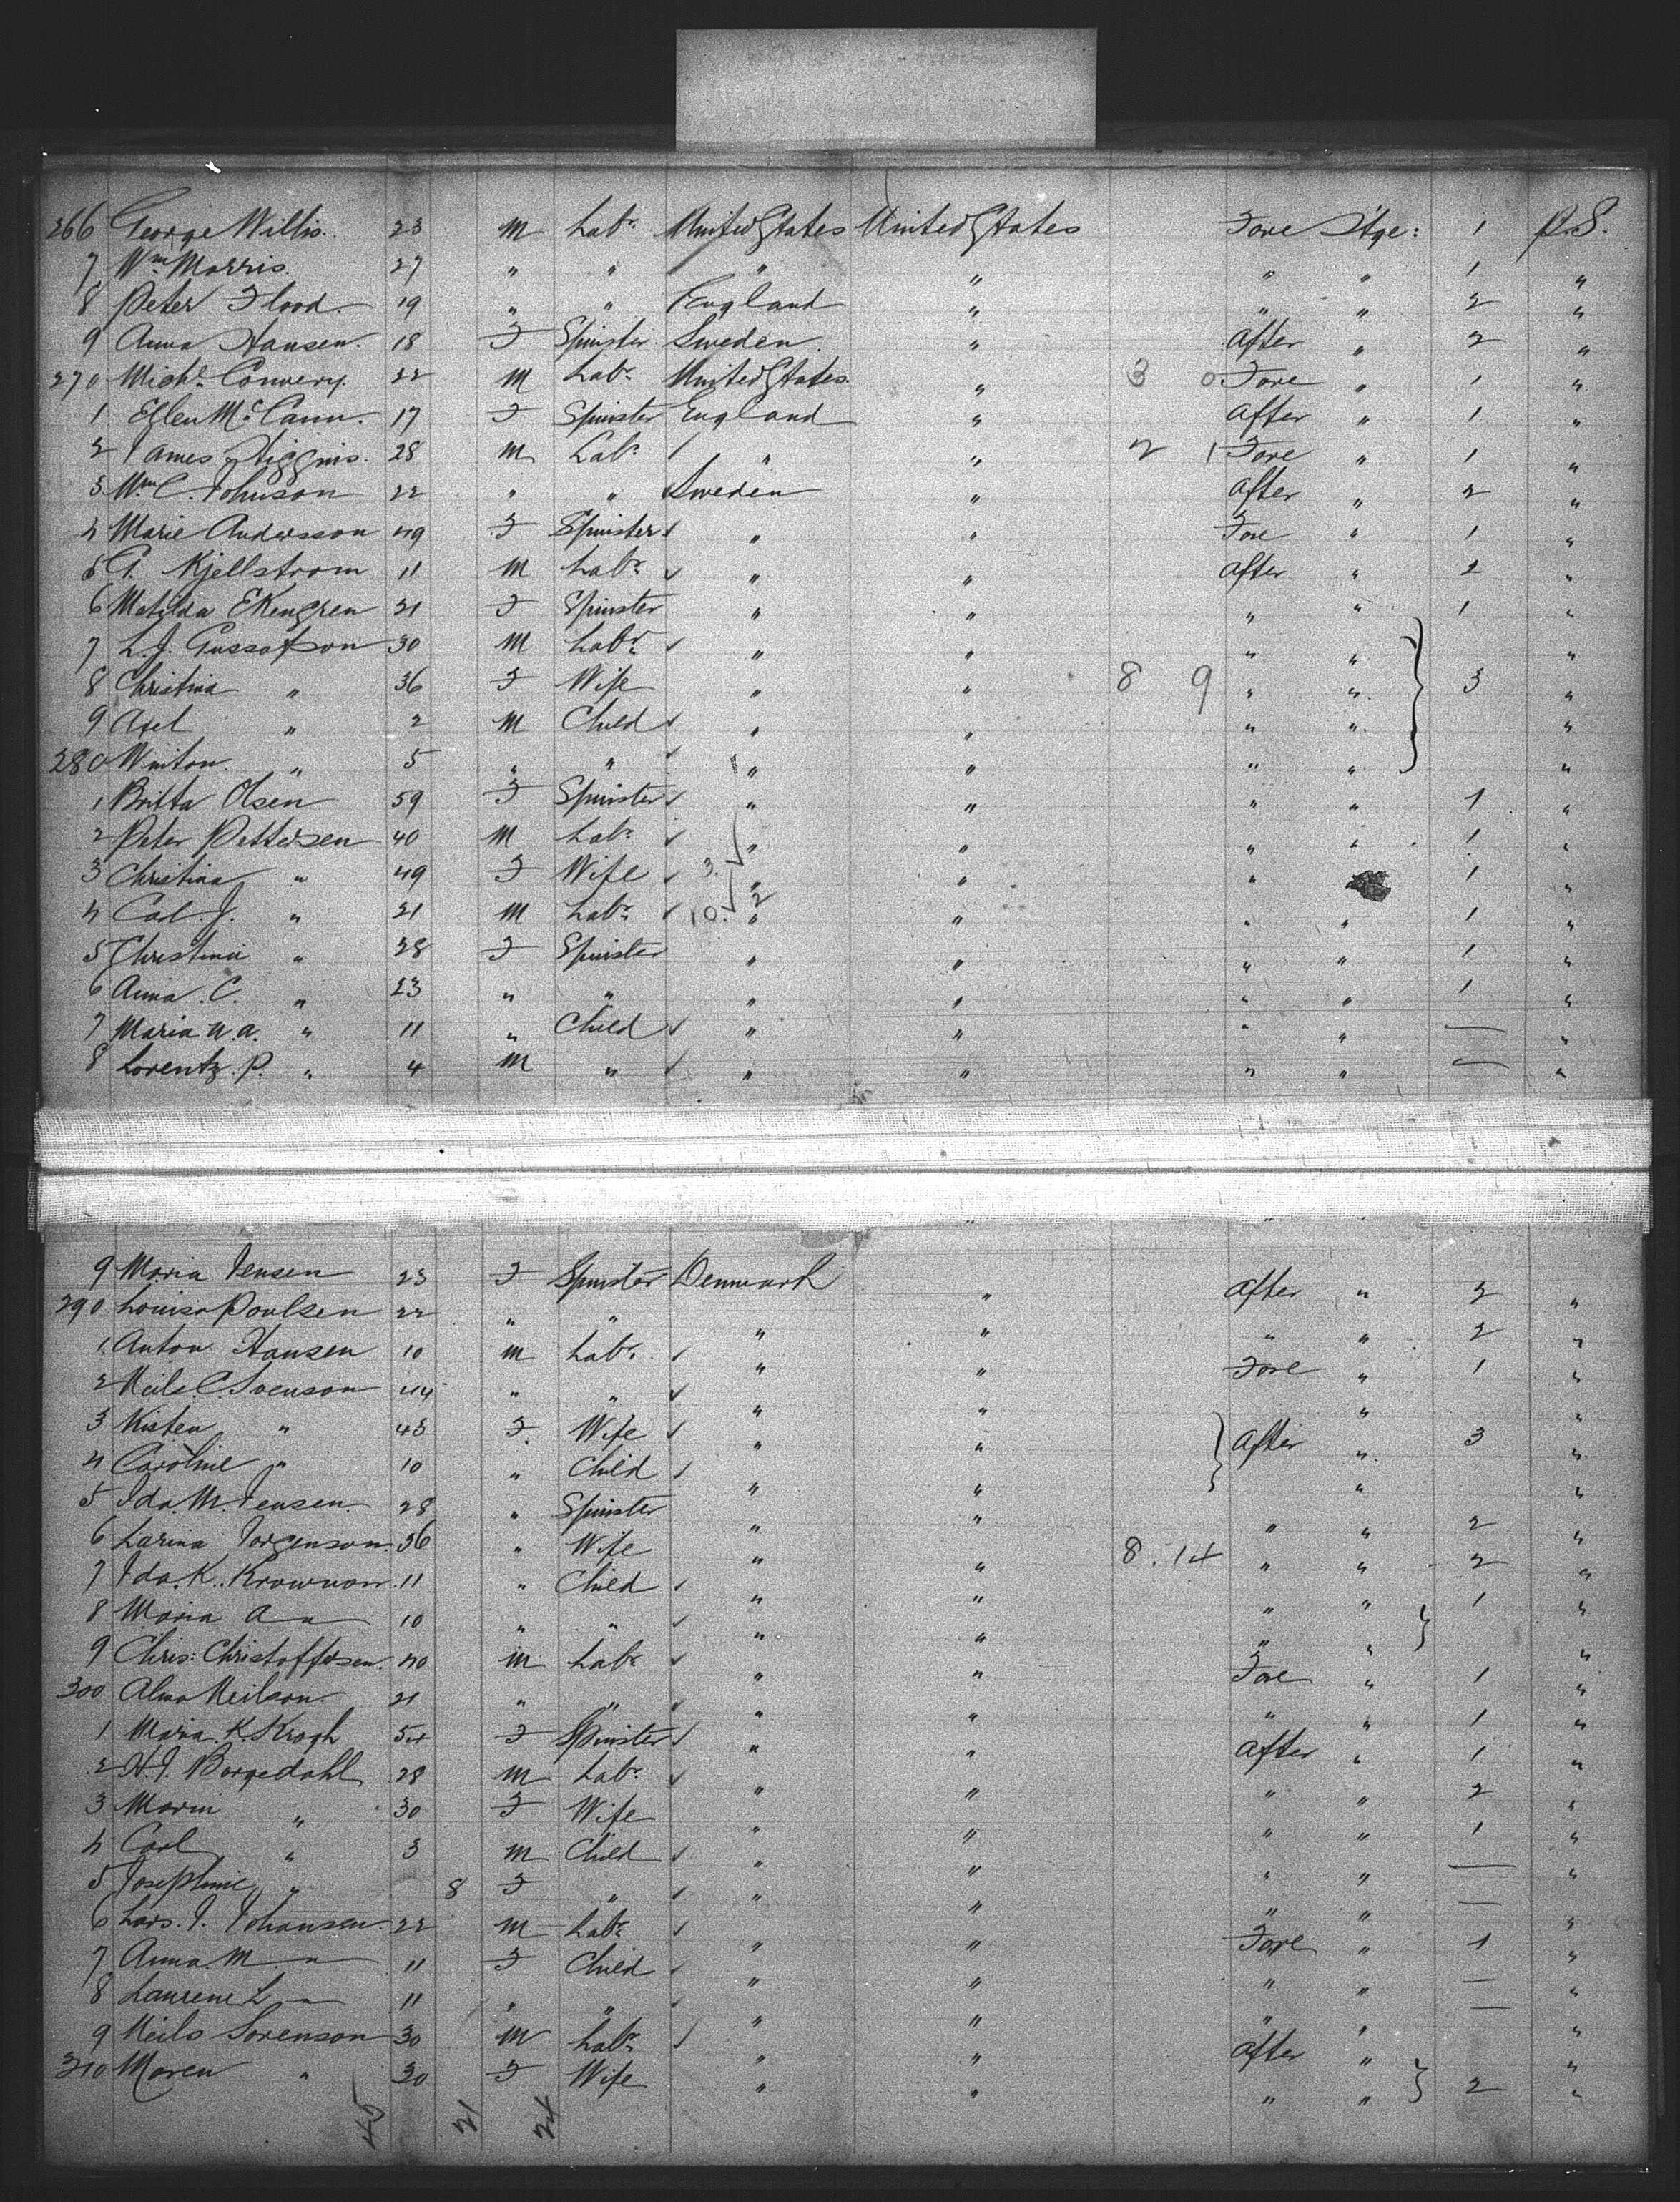 266 George Willis. 23 M Labr. United States United States Fore Stge: 1 P.S.
7 Wm Morris. 27 " " " " " " 1 "
8 Peter Flood. 19 " " England " " " 2 "
9 Anna Hansen. 18 F Spinster Sweden " After " 2 "
270 Michl. Convery. 22 M Labr. United States. " 3 0 Fore " 1 "
1 Ellen McCann. 17 F Spinster England " After " 1 "
2 James Higgins. 28 M Labr. " " 2 1 Fore " 1 "
3 Wm C. Johnson 22 " " Sweden " After " 2 "
4 Marie Andersson 49 F Spinster " " Fore " 1 "
5 G. Kjellstrom 11 M Labr. " " After " 2 "
6 Matilda Ekengren 21 F Spinster " " " " 1 "
7 L. J. Gussafson 30 M Labr. " " " " "
8 Christina " 36 F Wife " " 8 9 " " 3 "
9 Axel " 2 M Child " " " " "
280 Winton " 5 " " " " " " "
1 Britta Olsen 59 F Spinster " " " " 1 "
2 Peter Pettersen 40 M Labr. " " " " 1 "
3 Christina " 49 F Wife 3. " " " 1 "
4 Carl. J. " 21 M Labr. 10. 2 " " " " 1 "
5 Christina " 28 F Spinster " " " " 1 "
6 Anna. C. " 23 " " " " " " 1 "
7 Maria W. A. " 11 " Child " " " " — "
8 Lorentz. P. " 4 M " " " " " — "
9 Maria Jensen 23 F Spinster Denmark " After " 2 "
290 Louisa Poulsen 22 " " " " " " 2 "
1 Anton Hansen 10 M Labr. " " Fore " 1 "
2 Neils C. Svenson 44 " " " " " "
3 Kisten " 43 F. Wife " " After " 3 "
4 Caroline " 10 " Child " " " "
5 Ida M. Jensen 28 " Spinster " " " " 2 "
6 Larina Jorgenson 36 " Wife " " 8. 14 " " 2 "
7 Ida. K. Krownon 11 " Child " " " " 1 "
8 Maria A " 10 " " " " " " "
9 Chris: Christoffersen. 40 M Labr. " " Fore " 1 "
300 Alma Neilson 21 " " " " " " 1 "
1 Maria. K. Krogh 54 F Spinster " " After " 1 "
2 H. J. Borgedahl 28 M Labr. " " " " 2 "
3 Marin " 30 F Wife " " " " 1 "
4 Carl " 3 M Child " " " " — "
5 Josephine " 8 F " " " " " — "
6 Lars. J. Johansen. 22 M Labr. " " Fore " 1 "
7 Anna. M. " 11 F Child " " " " — "
8 Laurene L " 11 " " " " " " — "
9 Neils Sorenson 30 M Labr. " " After " "
310 Maren " 30 F Wife " " " " 2 "
45 21 24